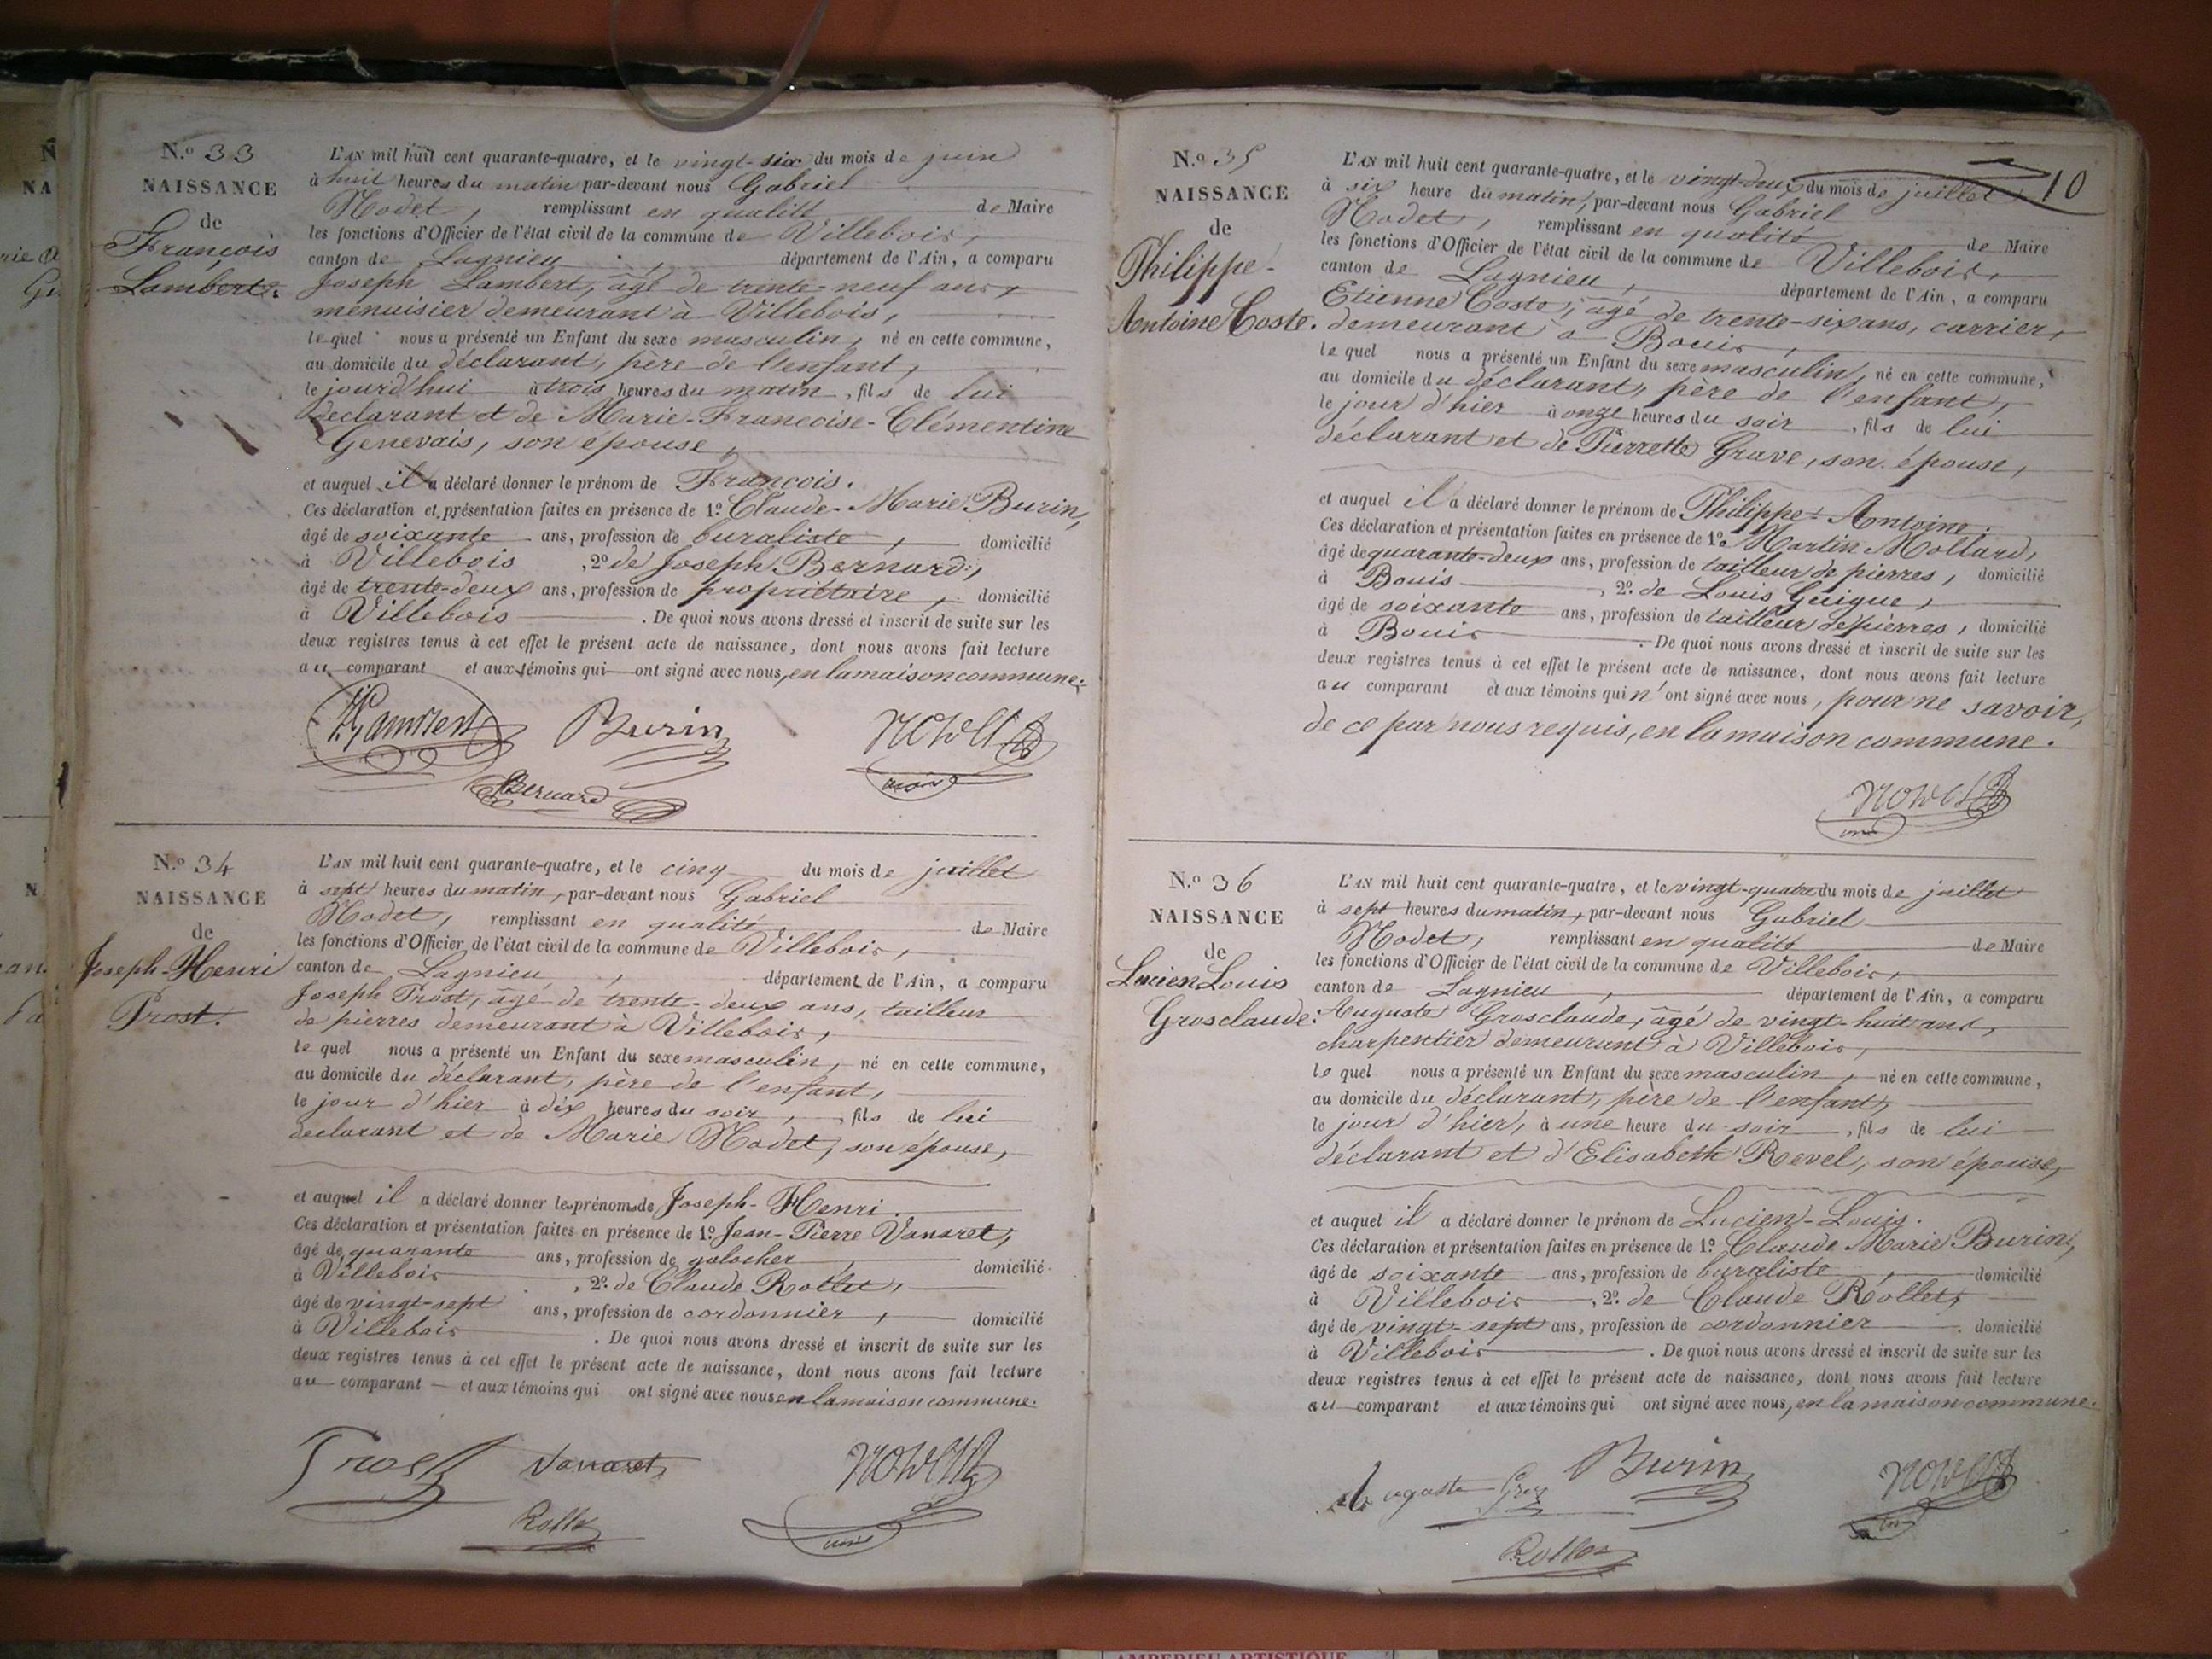 N.º 33
NAISSANCE
de
François
Lambert.
L'AN mil huit cent quarante-quatre, et le vingt-six du mois de juin
à huit heures du matin par-devant nous Gabriel
Nodet, remplissant en qualité de Maire
les fonctions d'Officier de l'état civil de la commune de Villebois,
canton de Lagnieu, département de l'Ain, a comparu
Joseph Lambert, âgé de trente-neuf ans,
menuisier demeurant à Villebois,
lequel nous a présenté un Enfant du sexe masculin, né en cette commune,
au domicile du déclarant, père de l'enfant,
le jourd'hui à trois heures du matin, fils de lui
déclarant et de Marie-Françoise-Clémentine
Genevais, son épouse,
et auquel il a déclaré donner le prénom de François.
Ces déclaration et présentation faites en présence de 1º Claude-Marie Burin,
âgé de soixante ans, profession de buraliste, domicilié
à Villebois, 2º de Joseph Bernard,
âgé de trente-deux ans, profession de propriétaire, domicilié
à Villebois. De quoi nous avons dressé et inscrit de suite sur les
deux registres tenus à cet effet le présent acte de naissance, dont nous avons fait lecture
au comparant et aux témoins qui ont signé avec nous, en la maison commune.
Lambert Burin Nodet
Bernard maire
N.º 34
NAISSANCE
de
Joseph-Henri
Prost.
L'AN mil huit cent quarante-quatre, et le cinq du mois de juillet
à sept heures du matin, par-devant nous Gabriel
Nodet, remplissant en qualité de Maire
les fonctions d'Officier de l'état civil de la commune de Villebois,
canton de Lagnieu, département de l'Ain, a comparu
Joseph Prost, âgé de trente-deux ans, tailleur
de pierres demeurant à Villebois,
lequel nous a présenté un Enfant du sexe masculin, né en cette commune,
au domicile du déclarant, père de l'enfant,
le jour d'hier à dix heures du soir, fils de lui
déclarant et de Marie Nodet, son épouse,
et auquel il a déclaré donner les prénoms de Joseph-Henri.
Ces déclaration et présentation faites en présence de 1º Jean-Pierre Vanaret,
âgé de quarante ans, profession de galocher, domicilié
à Villebois, 2º de Claude Rollet,
âgé de vingt-sept ans, profession de cordonnier, domicilié
à Villebois. De quoi nous avons dressé et inscrit de suite sur les
deux registres tenus à cet effet le présent acte de naissance, dont nous avons fait lecture
au comparant et aux témoins qui ont signé avec nous en la maison commune.
Prost Vanaret Nodet
Rollet maire
10
N.º 35
NAISSANCE
de
Philippe-
Antoine Coste.
L'AN mil huit cent quarante-quatre, et le vingt-deux du mois de juillet,
à six heure du matin, par-devant nous Gabriel
Nodet, remplissant en qualité de Maire
les fonctions d'Officier de l'état civil de la commune de Villebois,
canton de Lagnieu, département de l'Ain, a comparu
Etienne Coste, âgé de trente-six ans, carrier,
demeurant à Bouis,
lequel nous a présenté un Enfant du sexe masculin, né en cette commune,
au domicile du déclarant, père de l'enfant,
le jour d'hier à onze heures du soir, fils de lui
déclarant et de Pierrette Grave, son épouse,
et auquel il a déclaré donner le prénom de Philippe-Antoine.
Ces déclaration et présentation faites en présence de 1º Martin Mollard,
âgé de quarante-deux ans, profession de tailleur de pierres, domicilié
à Bouis, 2º de Louis Guigue,
âgé de soixante ans, profession de tailleur de pierres, domicilié
à Bouis. De quoi nous avons dressé et inscrit de suite sur les
deux registres tenus à cet effet le présent acte de naissance, dont nous avons fait lecture
au comparant et aux témoins qui n'ont signé avec nous, pour ne savoir,
de ce par nous requis, en la maison commune.
Nodet
N.º 36
NAISSANCE
de
Lucien Louis
Grosclaude.
L'AN mil huit cent quarante-quatre, et le vingt-quatre du mois de juillet
à sept heures du matin, par-devant nous Gabriel
Nodet, remplissant en qualité de Maire
les fonctions d'Officier de l'état civil de la commune de Villebois,
canton de Lagnieu, département de l'Ain, a comparu
Auguste Grosclaude, âgé de vingt-huit ans,
charpentier demeurant à Villebois,
lequel nous a présenté un Enfant du sexe masculin, né en cette commune,
au domicile du déclarant, père de l'enfant,
le jour d'hier, à une heure du soir, fils de lui
déclarant et d'Elisabeth Revel, son épouse,
et auquel il a déclaré donner le prénom de Lucien-Louis.
Ces déclaration et présentation faites en présence de 1º Claude Marie Burin,
âgé de soixante ans, profession de buraliste, domicilié
à Villebois, 2º de Claude Rollet,
âgé de vingt-sept ans, profession de cordonnier, domicilié
à Villebois. De quoi nous avons dressé et inscrit de suite sur les
deux registres tenus à cet effet le présent acte de naissance, dont nous avons fait lecture
au comparant et aux témoins qui ont signé avec nous, en la maison commune.
Burin Nodet
Rollet
AMBERIEU ARTISTIQUE